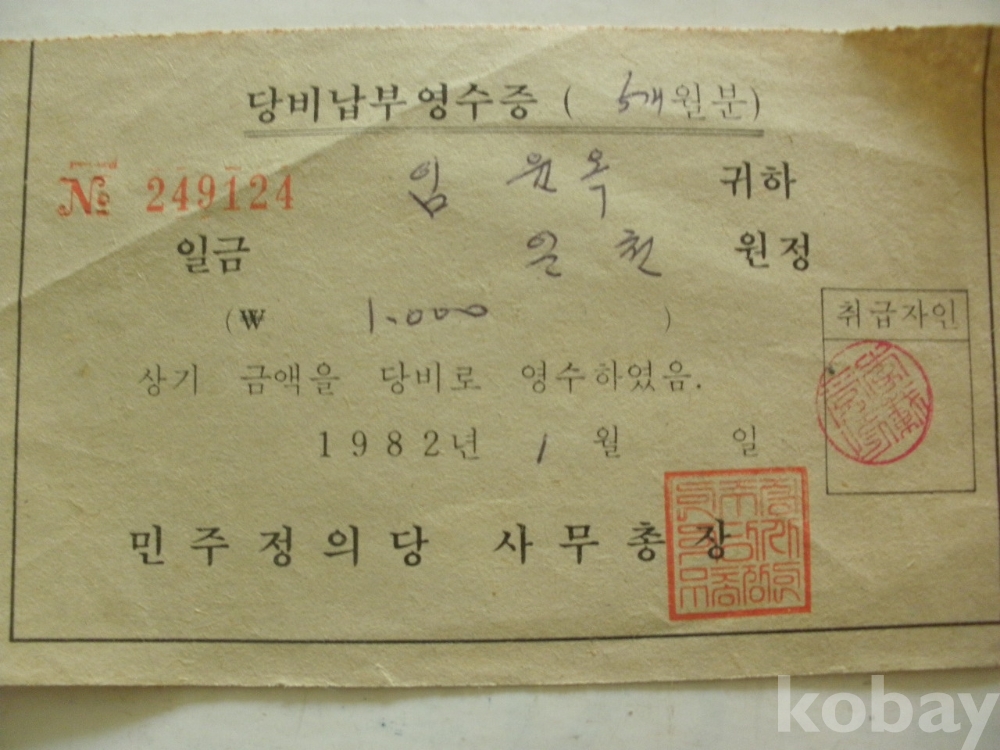 당비납부영수증 ( 5개월분)
№ 249124 임 원옥 귀하
일금 일천 원정
(₩ 1.000 )
취급자인
상기 금액을 당비로 영수하였음.
1982년 1월 일
민주정의당 사무총장
kobay